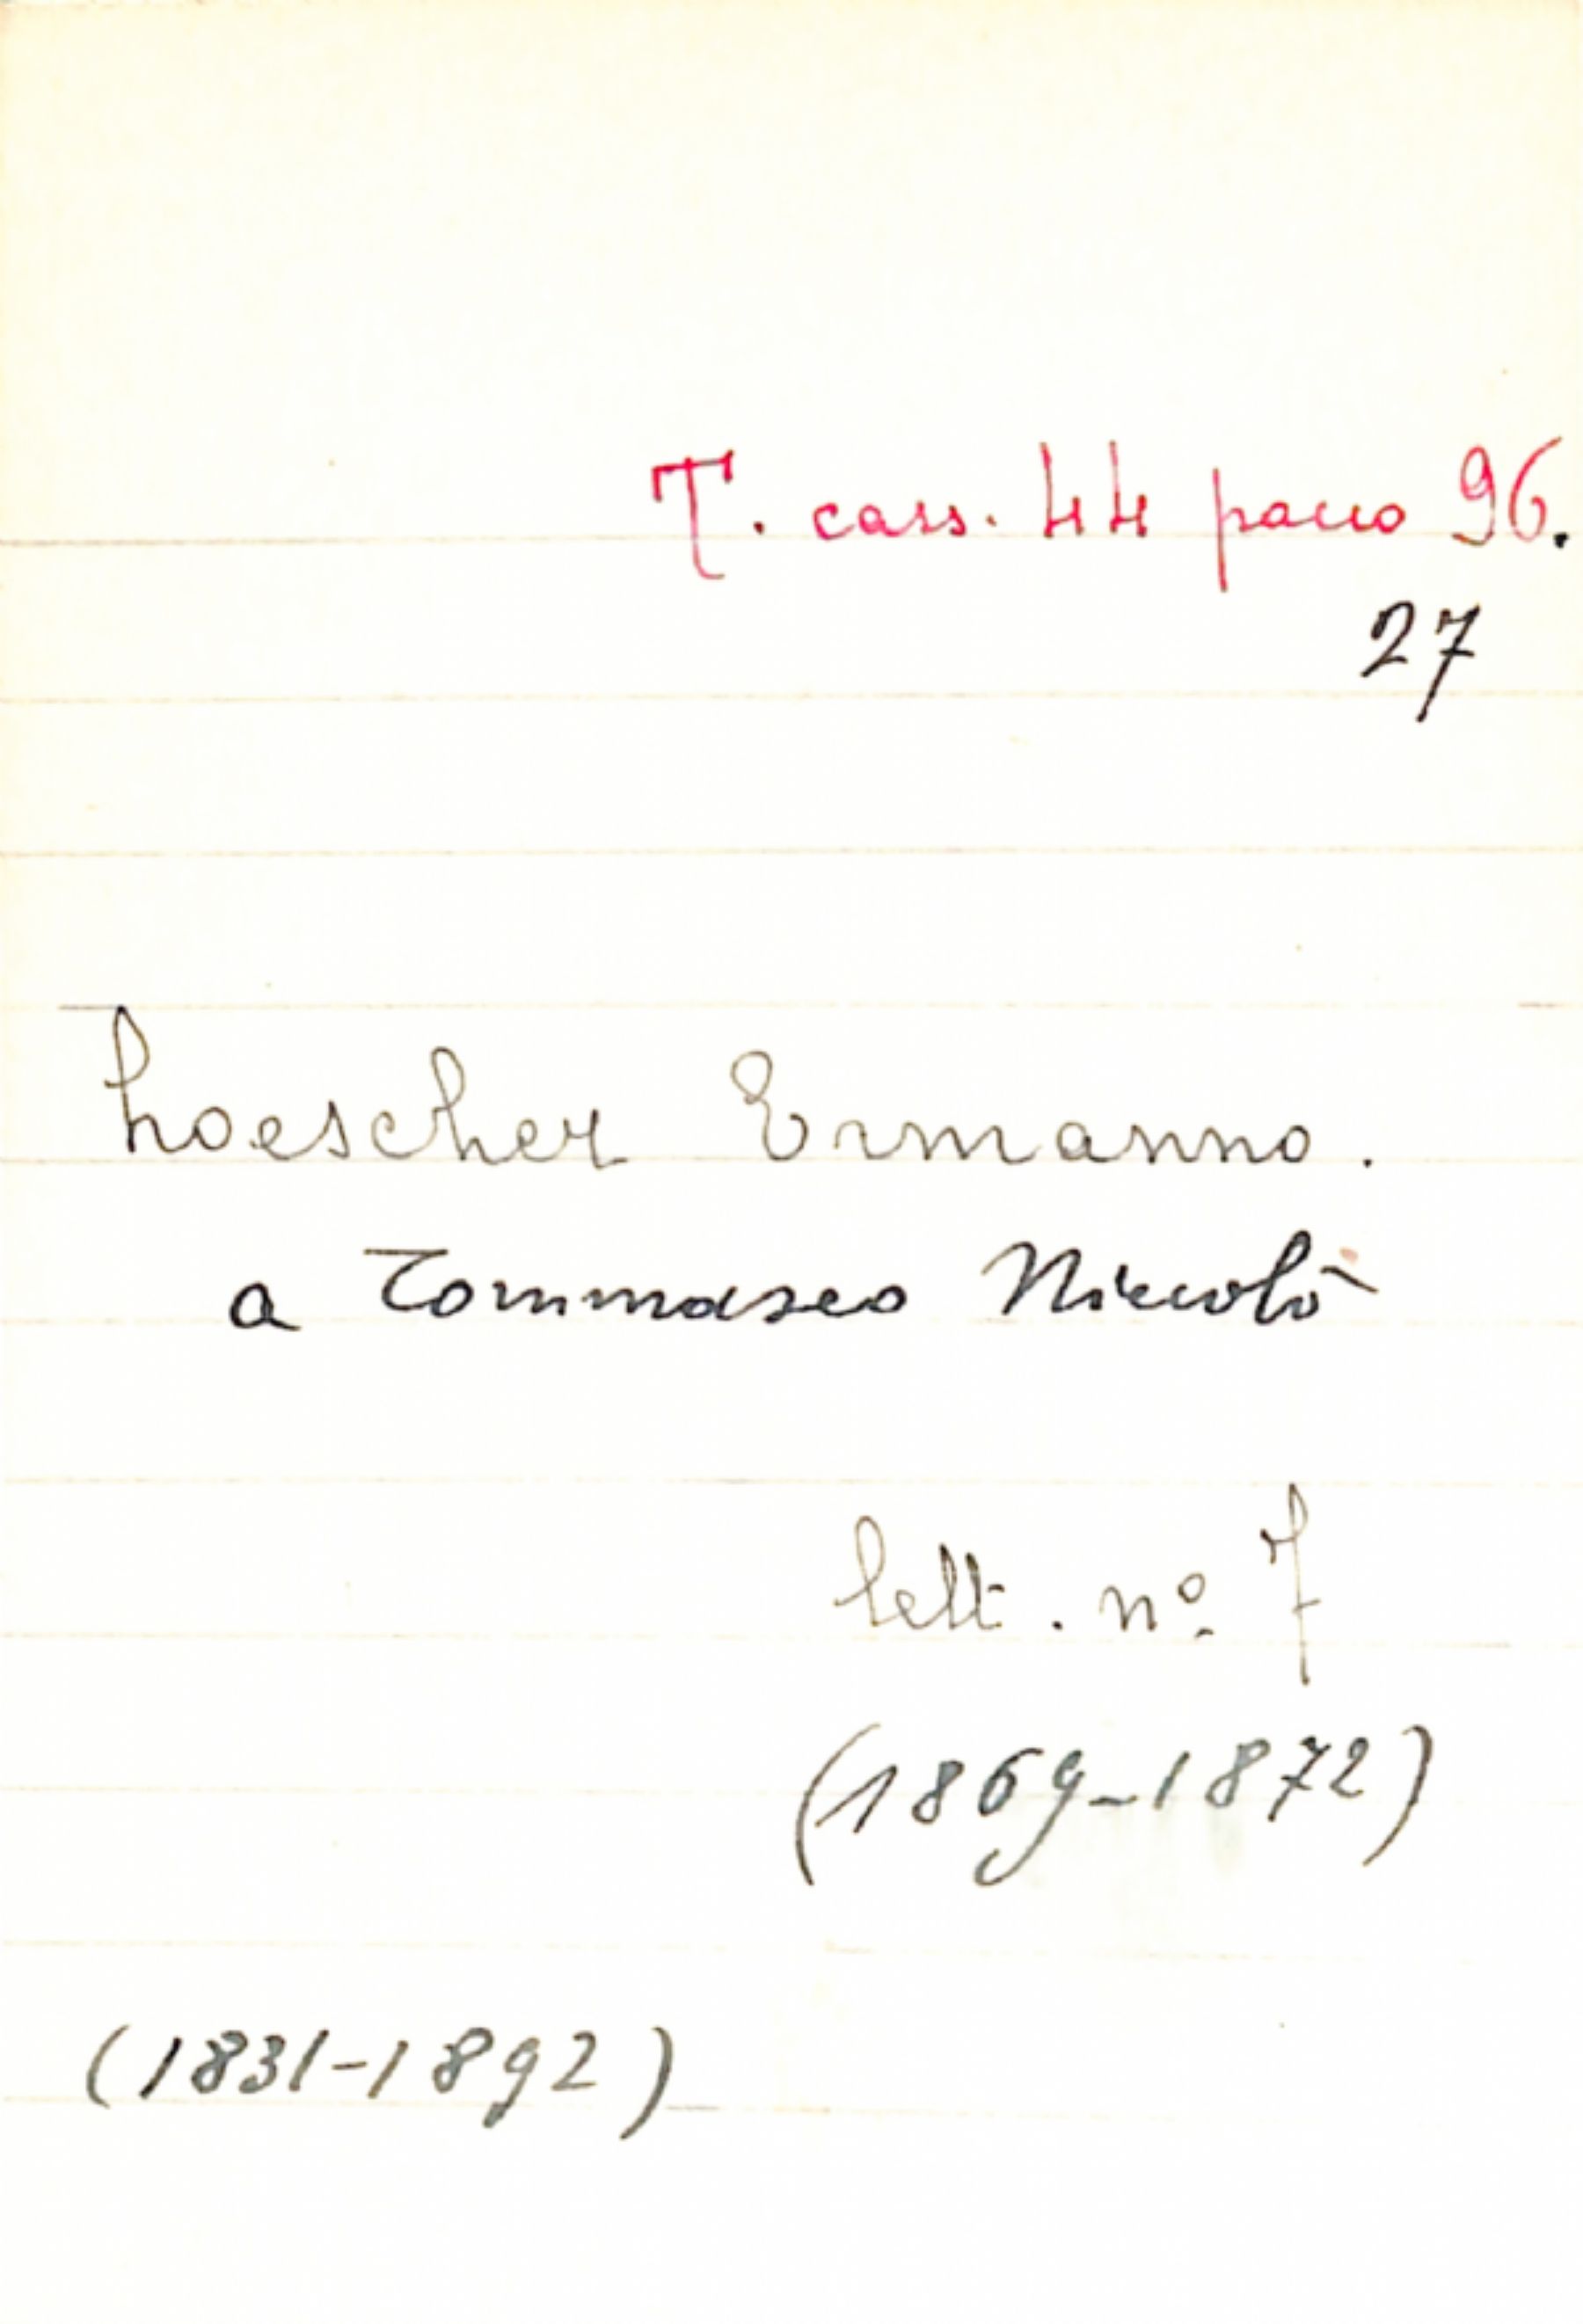 T. cass. 44 pacco 96.
27
Loescher Ermanno.
a Tommaseo Niccolò
lett. nº 7
(1869-1872)
(1831-1892)